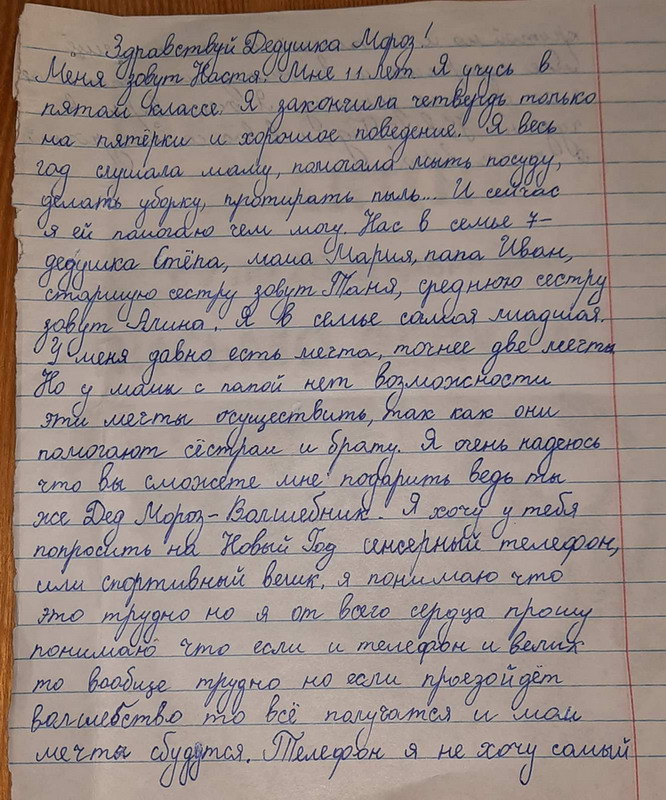 Здравствуй Дедушка Мороз!
Меня зовут Настя. Мне 11 лет. Я учусь в
пятом классе. Я закончила четвердь только
на пятёрки и хорошое поведение. Я весь
год слушала маму, помогала мыть посуду,
делать уборку, протирать пыль... И сейчас
я ей помогаю чем могу. Нас в семье 7-
дедушка Стёпа, мама Мария, папа Иван,
старшую сестру зовут Таня, среднюю сестру
зовут Алина. Я в семье самая младшая.
У меня давно есть мечта, точнее две мечты
Но у мамы с папой нет возможности
эти мечты осуществить, так как они
помогают сёстрам и брату. Я очень надеюсь
что вы сможете мне подарить ведь ты
же Дед Мороз-Волшебник. Я хочу у тебя
попросить на Новый Год сенсерный телефон,
или спортивный велик, я понимаю что
это трудно но я от всего сердца прошу
понимаю что если и телефон и велик
то вообще трудно но если проезойдёт
волшебство то всё получатся и мои
мечты сбудутся. Телефон я не хочу самый